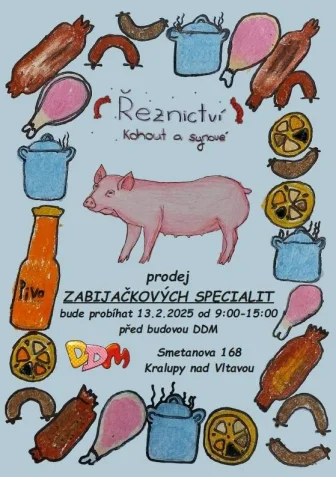 Řeznictví
Kohout a synové
prodej
ZABIJAČKOVÝCH SPECIALIT
bude probíhat 13.2.2025 od 9:00-15:00
před budovou DDM
DDM
Smetanova 168
Kralupy nad Vltavou
Pivo